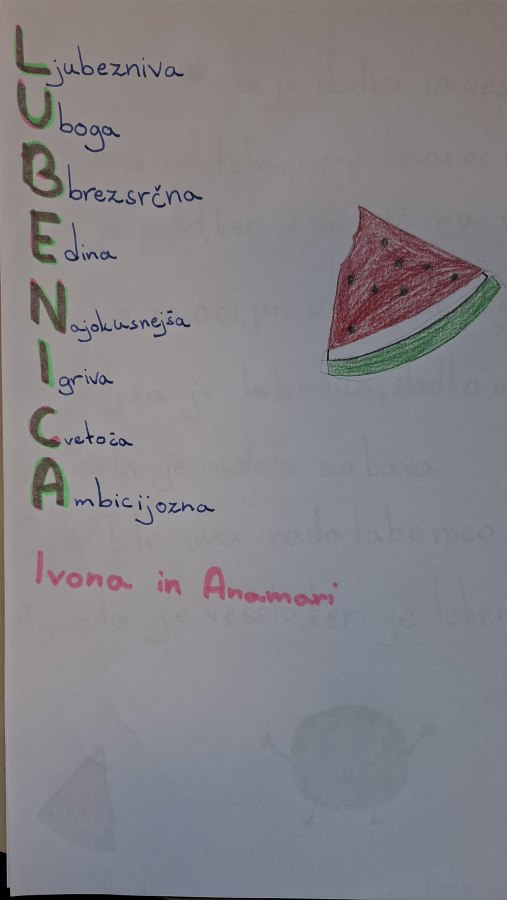 Ljubezniva
Uboga
Bbrezsrčna
Edina
Najokusnejša
Igriva
Cvetoča
Ambicijozna
Ivona in Anamari